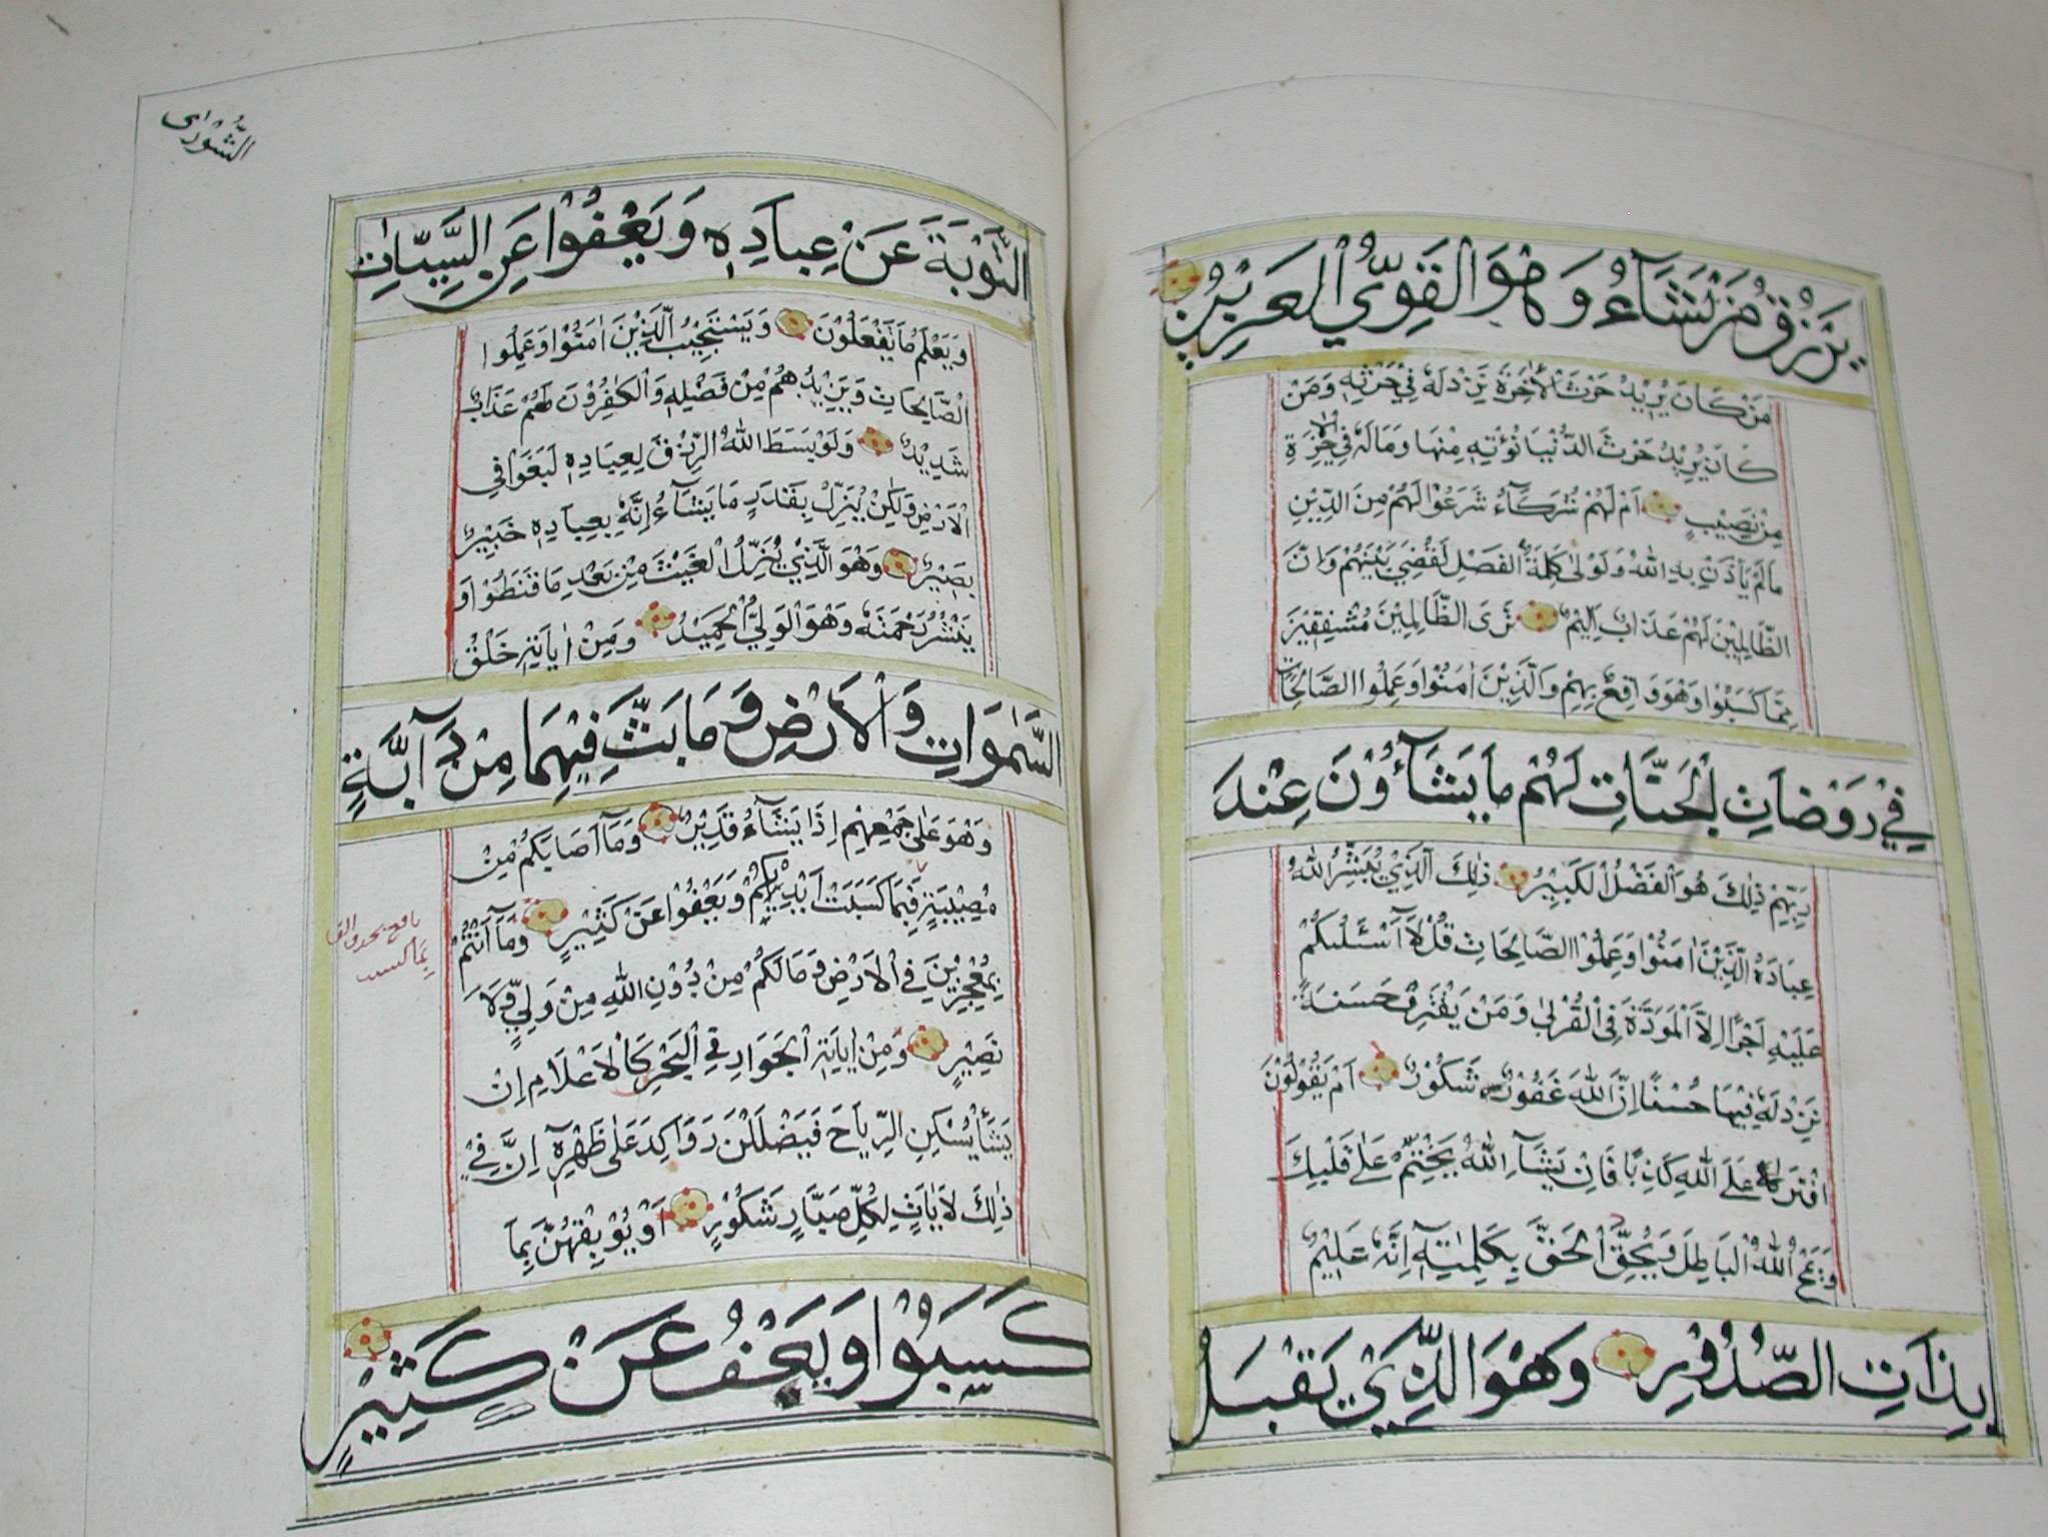 يَرْزُقُ مَنْ يَشَآءُ وَهُوَ الْقَوِيُّ الْعَزِيزُ
مَنْ كَانَ يُرِيْدُ حَرْثَ الْاٰخِرَةِ نَزِدْ لَهٗ فِيْ حَرْثِهٖ وَمَنْ
كَانَ يُرِيْدُ حَرْثَ الدُّنْيَا نُؤْتِهٖ مِنْهَا وَمَالَهٗ فِي الْاٰخِرَةِ
مِنْ نَصِيْبٍ اَمْ لَهُمْ شُرَكَآءُ شَرَعُوْا لَهُمْ مِنَ الدِّيْنِ
مَالَمْ يَأْذَنْ بِهِ اللّٰهُ وَلَوْلَا كَلِمَةُ الْفَصْلِ لَقُضِيَ بَيْنَهُمْ وَاِنَّ
الظَّالِمِيْنَ لَهُمْ عَذَابٌ اَلِيْمٌ تَرَى الظَّالِمِيْنَ مُشْفِقِيْنَ
مِمَّا كَسَبُوْا وَهُوَ وَاقِعٌ بِهِمْ وَالَّذِيْنَ اٰمَنُوْا وَعَمِلُوا الصَّالِحَاتِ
فِيْ رَوْضَاتِ الْجَنَّاتِ لَهُمْ مَا يَشَآؤُوْنَ عِنْدَ
رَبِّهِمْ ذٰلِكَ هُوَ الْفَضْلُ الْكَبِيْرُ ذٰلِكَ الَّذِيْ يُبَشِّرُ اللّٰهُ
عِبَادَهُ الَّذِيْنَ اٰمَنُوْا وَعَمِلُوا الصَّالِحَاتِ قُلْ لَآ اَسْئَلُكُمْ
عَلَيْهِ اَجْرًا اِلَّا الْمَوَدَّةَ فِي الْقُرْبٰى وَمَنْ يَقْتَرِفْ حَسَنَةً
نَزِدْ لَهٗ فِيْهَا حُسْنًا اِنَّ اللّٰهَ غَفُوْرٌ شَكُوْرٌ اَمْ يَقُوْلُوْنَ
افْتَرٰى عَلَى اللّٰهِ كَذِبًا فَاِنْ يَشَآءِ اللّٰهُ يَخْتِمْ عَلٰى قَلْبِكَ
وَيَمْحُ اللّٰهُ الْبَاطِلَ وَيُحِقُّ الْحَقَّ بِكَلِمٰتِهٖ اِنَّهٗ عَلِيْمٌ
بِذَاتِ الصُّدُوْرِ وَهُوَ الَّذِيْ يَقْبَلُ
الشُّوْرٰى
التَّوْبَةَ عَنْ عِبَادِهٖ وَيَعْفُوْا عَنِ السَّيِّاٰتِ
وَيَعْلَمُ مَا تَفْعَلُوْنَ وَيَسْتَجِيْبُ الَّذِيْنَ اٰمَنُوْا وَعَمِلُوا
الصَّالِحَاتِ وَيَزِيْدُهُمْ مِنْ فَضْلِهٖ وَالْكَافِرُوْنَ لَهُمْ عَذَابٌ
شَدِيْدٌ وَلَوْ بَسَطَ اللّٰهُ الرِّزْقَ لِعِبَادِهٖ لَبَغَوْا فِي
الْاَرْضِ وَلٰكِنْ يُنَزِّلُ بِقَدَرٍ مَا يَشَآءُ اِنَّهٗ بِعِبَادِهٖ خَبِيْرٌ
بَصِيْرٌ وَهُوَ الَّذِيْ يُنَزِّلُ الْغَيْثَ مِنْ بَعْدِ مَا قَنَطُوْا وَ
يَنْشُرُ رَحْمَتَهٗ وَهُوَ الْوَلِيُّ الْحَمِيْدُ وَمِنْ اٰيَاتِهٖ خَلْقُ
السَّمٰوَاتِ وَالْاَرْضِ وَمَا بَثَّ فِيْهِمَا مِنْ دَآبَّةٍ
وَهُوَ عَلٰى جَمْعِهِمْ اِذَا يَشَآءُ قَدِيْرٌ وَمَآ اَصَابَكُمْ مِنْ
مُصِيْبَةٍ فَبِمَا كَسَبَتْ اَيْدِيْكُمْ وَيَعْفُوْا عَنْ كَثِيْرٍ وَمَآ اَنْتُمْ
بِمُعْجِزِيْنَ فِي الْاَرْضِ وَمَا لَكُمْ مِنْ دُوْنِ اللّٰهِ مِنْ وَلِيٍّ وَلَا
نَصِيْرٍ وَمِنْ اٰيَاتِهِ الْجَوَارِ فِي الْبَحْرِ كَالْاَعْلَامِ اِنْ
يَشَأْ يُسْكِنِ الرِّيَاحَ فَيَضْلَلْنَ رَوَاكِدَ عَلٰى ظَهْرِهٖ اِنَّ فِيْ
ذٰلِكَ لَاٰيَاتٍ لِكُلِّ صَبَّارٍ شَكُوْرٍ اَوْ يُوْبِقْهُنَّ بِمَا
كَسَبُوْا وَيَعْفُ عَنْ كَثِيْرٍ
نافع بحذف الفا
بِمَا كسبت